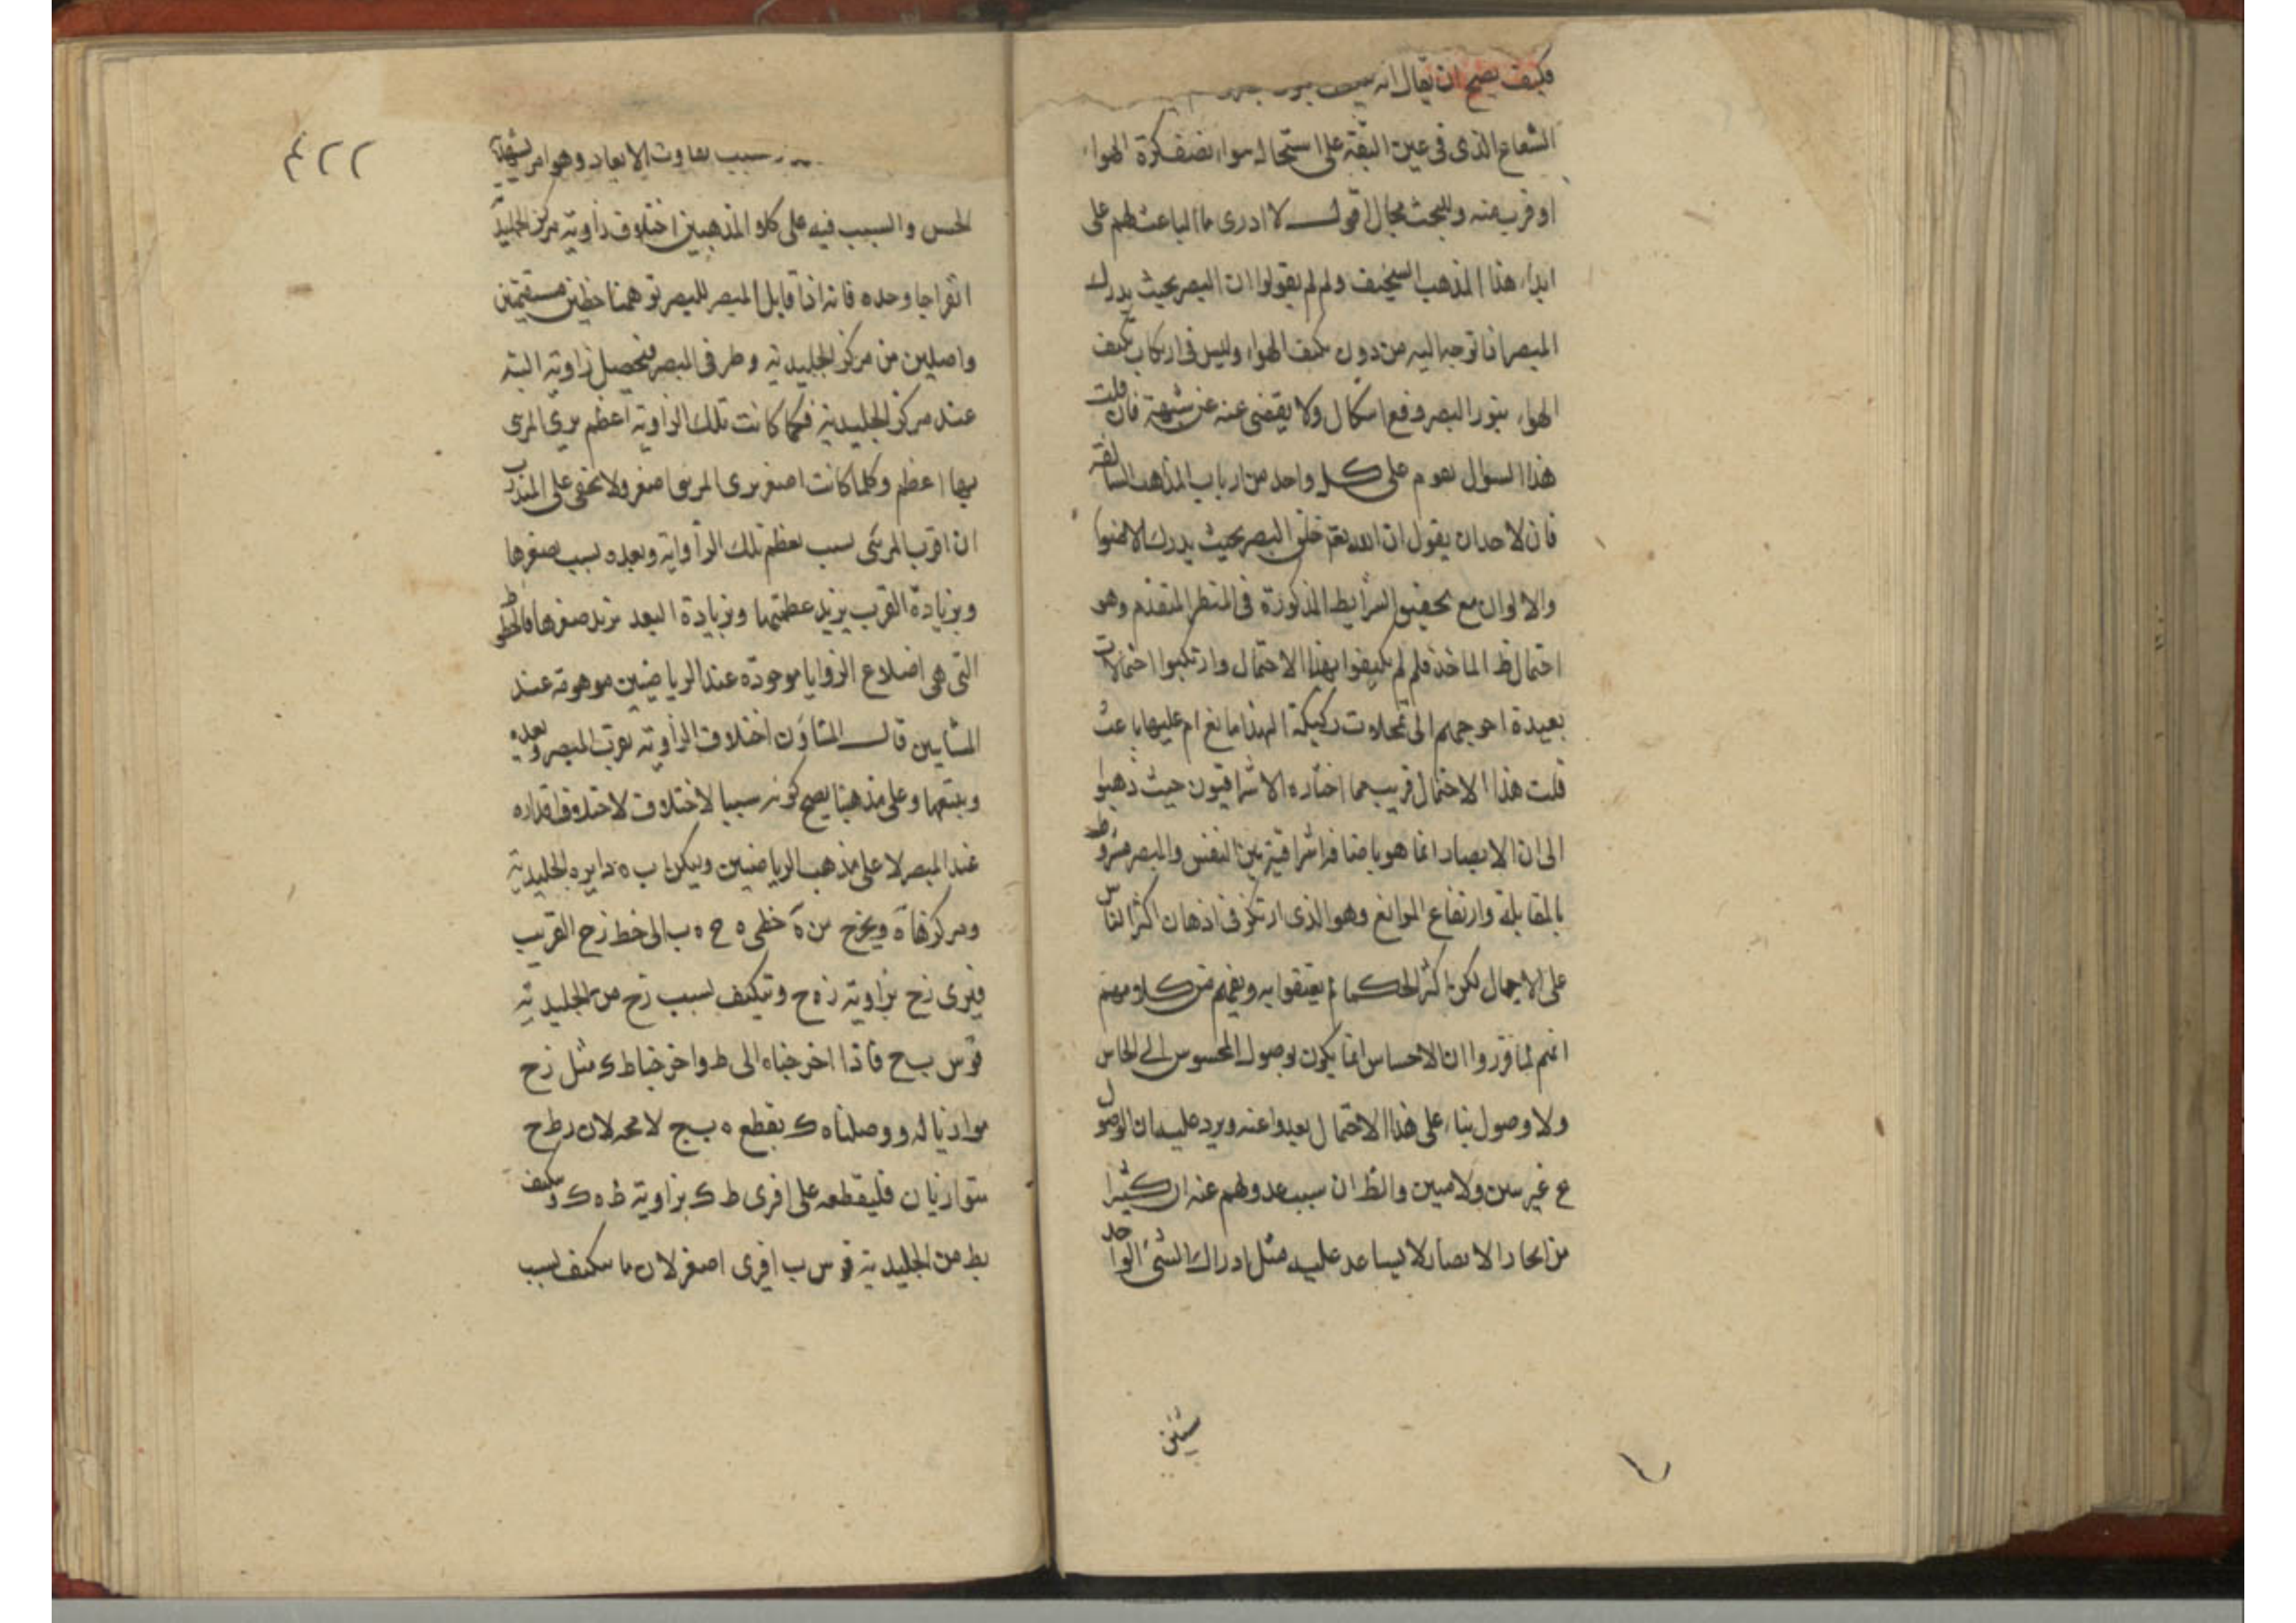 فكيف يصح ان يقال انه
الشعاع الذى فى عين البقة على استحاله سواء نصف كرة الهواء
او قريب منه وللبحث مجال اقول لا ادرى ما الباعث لهم على
ابداء هذا المذهب السخيف ولم لم يقولوا ان البصر بحيث يدرك
المبصر اذا توجه اليه من دون تكيف الهواء وليس فى ارتكاب تكيف
الهواء بنور البصر وفع اشكال ولا يقضى عنه عن شبهة فان قلت
هذا السوال يعوم على كل واحد من ارباب المذاهب السالفة
فان لاحد ان يقول ان الله تعم خلق البصر بحيث يدرك الاضواء
والالوان مع تحقيق الشرايط المذكورة فى المنظر المتقدم وهو
احتمال ظ الماخذ فلم لم يكيفوا بهذا الاحتمال وارتكبوا احتمالات
بعيدة احوجهم الى تمحلات ركيكة الهذا مانع ام عليها باعث
قلت هذا الاحتمال قريب مما اختاره الاشراقيون حيث ذهبوا
الى ان الابصار انما هو باضافة اشراقية بين النفس والمبصر مشروط
بالمقابلة وارتفاع الموانع وهو الذى ارتكز فى اذهان اكثر الناس
على الاجمال لكن اكثر الحكما لم يعتقوا به ويفهم من كلامهم
انهم لما قرروا ان الاحساس انما يكون بوصول المحسوس الى الحاس
ولا وصول بناء على هذا الاحتمال بعدوا عنه ويرد عليه ان الوصول
ع غير بين ولا مبين والظ ان سبب عدولهم عنه ان كثيرا
من انحاء الابصار لا يساعد عليه مثل ادراك الشئ الواحد
شيئين
٤٢٢
سبب تفاوت الابعاد وهو امر يشهد به
الحس والسبب فيه على كلا المذهبين اختلاف زاوية مركز الجليدية
انفراجا وحده فانه اذا قابل المبصر للبصر توهمنا خطين مستقيمين
واصلين من مركز الجليدية وطرفى المبصر فيحصل زاوية البتة
عند مركز الجليدية فكلما كانت تلك الزاوية اعظم يرى المرئى
بها اعظم وكلما كانت اصغر يرى المرئى اصغر ولا يخفى على المتدرب
ان اقرب المرئى بسبب بعظم تلك الزاوية وبعده بسبب بصغرها
وبزيادة القرب يزيد عظمتها وبزيادة البعد يزيد صغرها فالخطوط
التى هى اضلاع الزوايا موجودة عند الرياضيين موهومة عند
المشايين قال المشاؤن اختلاف الزاوية بقرب المبصر وبعده
وبتبعها وعلى مذهبنا يصح كونه سببا لاختلاف لاختلاف اقداره
عند المبصر لا على مذهب الرياضيين وليكن ا ب ه دايره الجليدية
ومركزها ه ويخرج من ه خطى ه ح ه ب الى خط زح القريب
فيرى زح بزاوية زه ح وتتكيف بسبب زح من الجليدية
قوس ب ح فاذا اخرجناه الى ط واخرجنا ط ك مثل زح
موازيا له ووصلناه ك يقطع ه ب ج لا محه لان ر ط ح
متوازيان فليقطعه على ا فرى ط ك بزاوية ط ه ك وتكيف
بط من الجليدية قوس ب ا فرى اصغر لان ما تتكيف بسبب